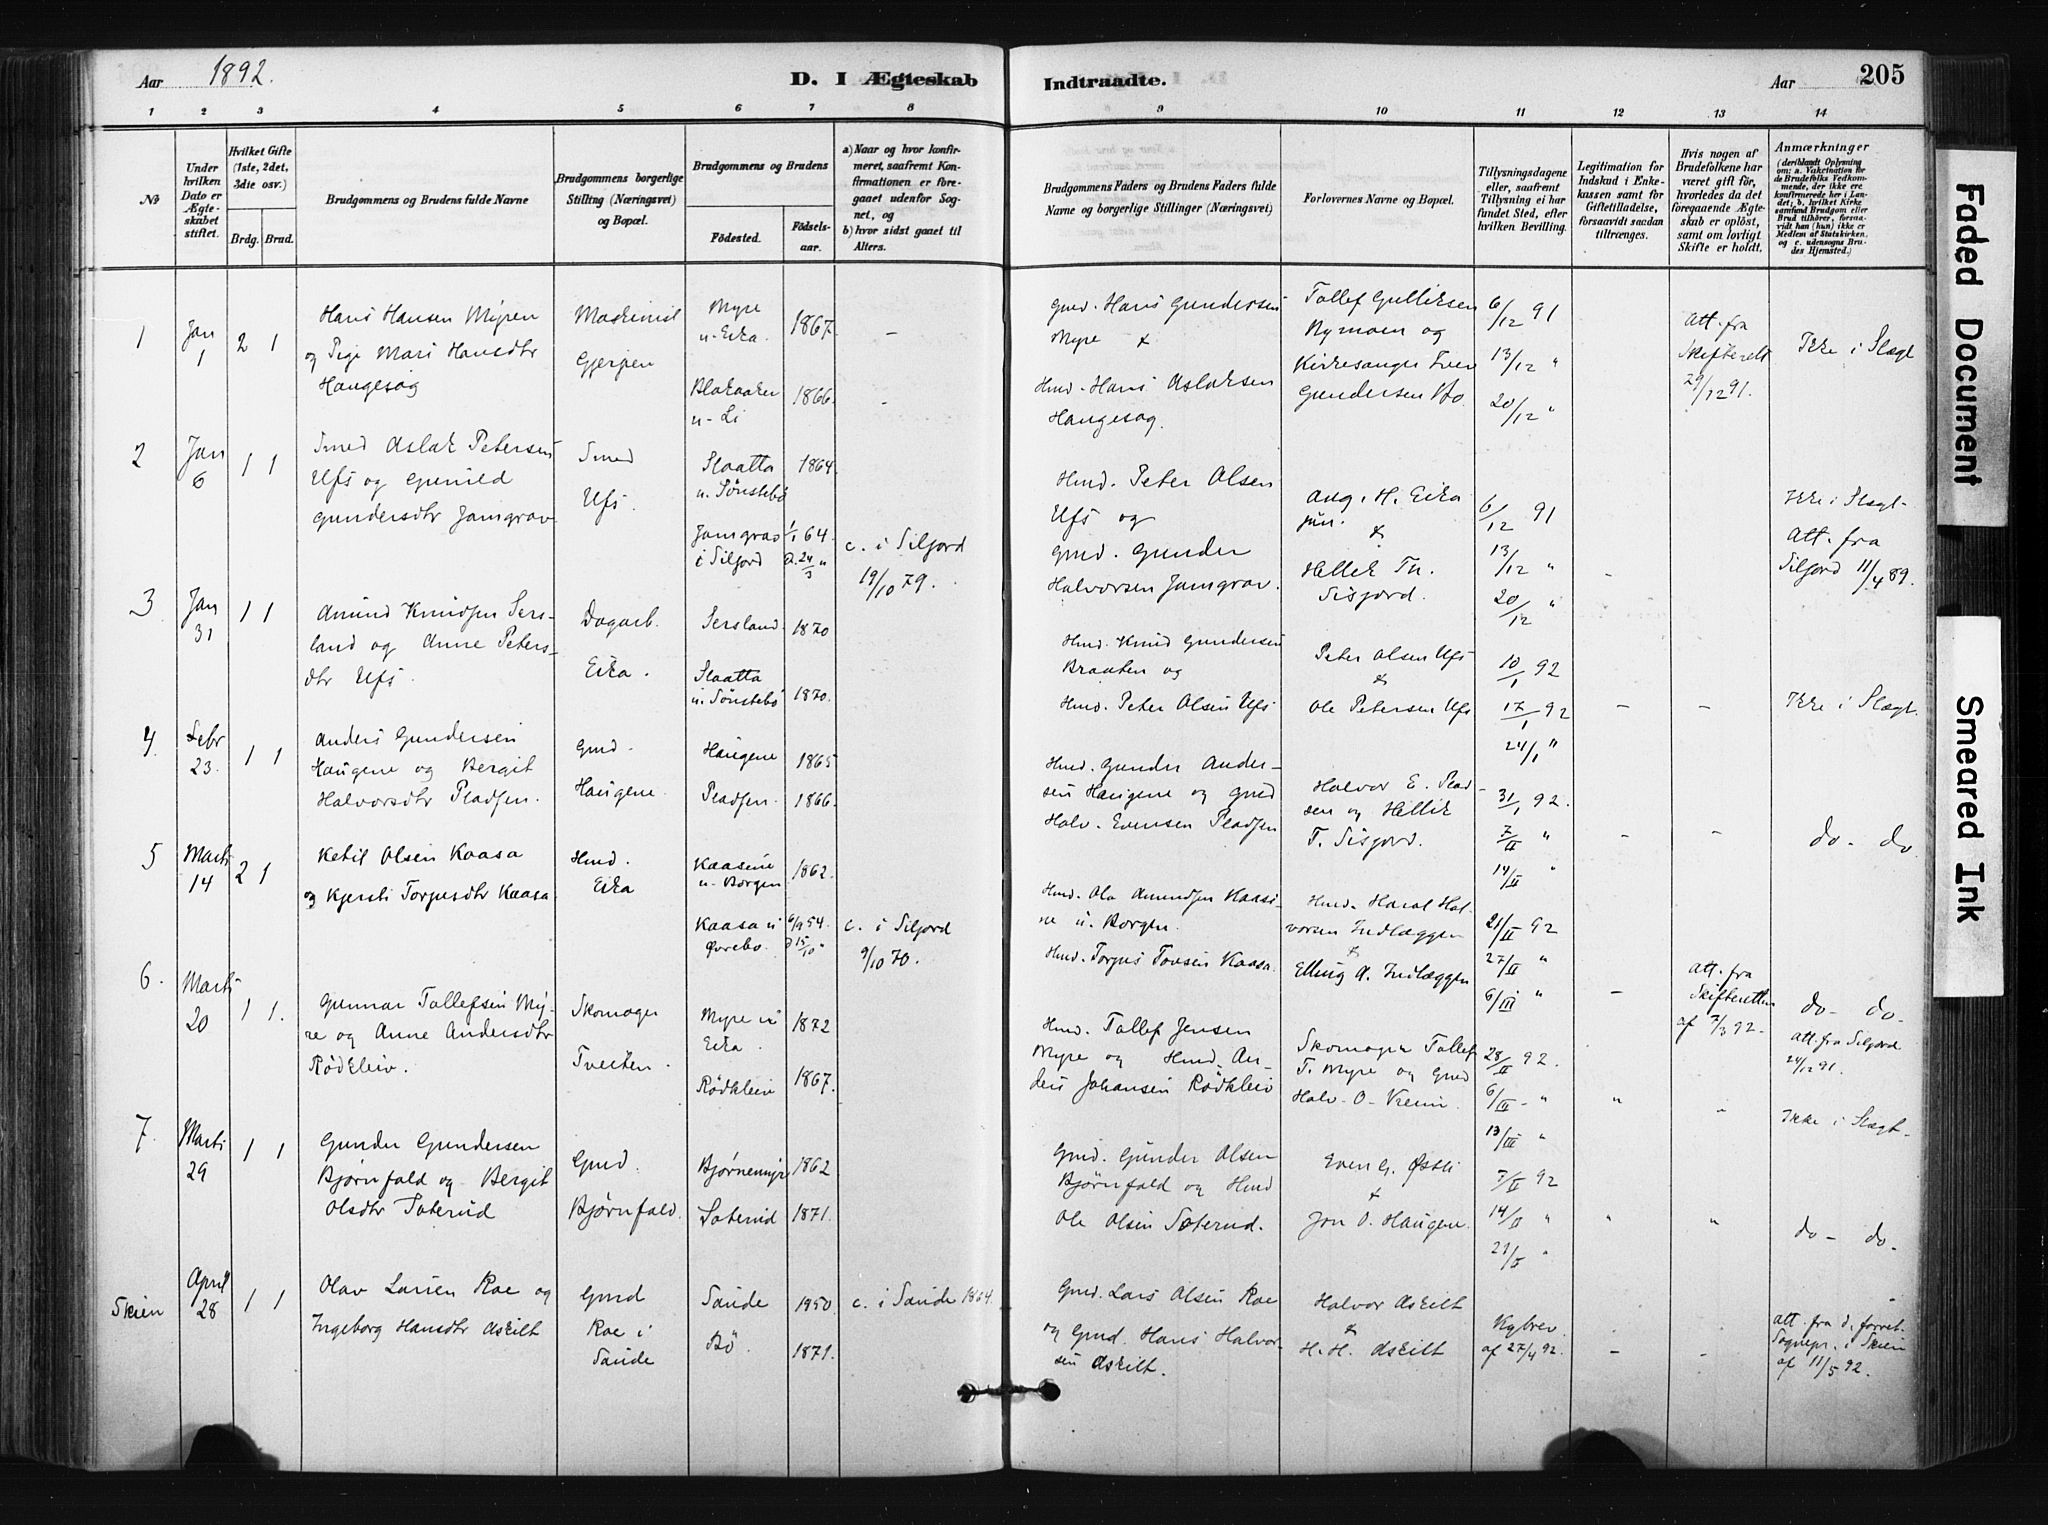 Aar 1892.
D. I Ægteskab
Indtraadte.
Aar
205
1 2 3 4 5 6 7 8
9 10 11 12 13 14
No
Under hvilken Dato er Ægteskabet stiftet.
Hvilket Gifte (1ste, 2det, 3die osv.)
Brdg. Brud.
Brudgommens og Brudens fulde Navne
Brudgommens borgerlige Stilling (Næringsvei) og Bopæl.
Brudgommens og Brudens
Födested.
Födselsaar.
a) Naar og hvor konfirmeret, saafremt Konfirmationen er foregaaet udenfor Sognet, og
b) hvor sidst gaaet til Alters.
Brudgommens Faders og Brudens Faders fulde Navne og borgerlige Stillinger (Næringsvei)
Forlovernes Navne og Bopæl.
Tillysningsdagene eller, saafremt Tillysning ei har fundet Sted, efter hvilken Bevilling.
Legitimation for Indskud i Enkekassen samt for Giftetilladelse, forsaavidt saadan tiltrænges.
Hvis nogen af Brudefolkene har været gift för, hvorledes da det foregaaende Ægteskab er oplöst, samt om lovligt Skifte er holdt.
Anmærkninger (deriblandt Oplysning om: a. Vakcination for Brudefolks Vedkommende, der ikke ere konfirmerede her i Landet; b. hvilket Kirkesamfund Brudgom eller Brud tilhörer, forsaavidt han (hun) ikke er Medlem af Statskirken, og c. udensogns Brudes Hjemsted.)
1
Jan 1
2 1
Hans Hansen Myren
og Pige Mari Hansdtr
Haugesag
Gjerpen
Myre
u. Eika
1867.
–
u. Li
1866.
–
Gmd. Hans Gundersen
Myre &
Hmd. Hans Aslaksen
Haugesag.
Tollef Gulliksen
Nymoen og
Kirkesanger Iver
Gundersen Bø.
6/12 91
13/12 "
20/12 "
Att. fra
Skifteret
29/12 91.
Ikke i Slægt
2
Jan 6
1 1
Smed Aslak Petersen
Ufs og Gunild
Gundersdtr Jamgrav
Smed
Ufs.
Slaatta
u. Sønstebø
1864.
Jamgrav
i Siljord
c. i Siljord
19/10 79.
Hmd. Peter Olsen
Ufs og
Gmd. Gunder
Halvorsen Jamgrav.
Aug. H. Eika
jun.
&
Hellik Tn.
Sisjord.
6/12 91
13/12 "
20/12 "
–
Ikke i Slægt-
Att. fra
Siljord 11/4 89.
3
Jan 31
1 1
Amund Knudsen Sersland og Anne Petersdtr Ufs.
Dagarb.
Eika.
Sersland.
1870
Slaatta
u. Sønstebø
1870.
Hmd. Knud Gundersen
Braaten og
Hmd. Peter Olsen Ufs
Peter Olsen Ufs
&
Ole Petersen Ufs
10/1 92
17/1 92
24/1 "
–
–
Ikke i Slægt.
4
Febr 23.
1 1
Anders Gundersen
Haugene og Bergit
Halvorsdtr Pladsen.
Gmd.
Haugene.
Haugene
1865
Pladsen.
1866.
Hmd. Gunder Andersen Haugene og Gmd
Halv. Evensen Pladsen
Halvor E. Pladsen og Hellik
T. Sisjord.
31/1 92.
7/II "
14/II "
–
–
do – do
5
Marts 14
2 1
Ketil Olsen Kaasa
og Kjersti Torgusdtr Kaasa.
Hmd.
Eika
Kaasene
u. Borgen
1862.
Kaasa u
Øvrebø.
6/9 54.
c. i Siljord
9/10 70.
Hmd. Ole Amundsen Kaasine u. Borgen.
Hmd. Torgus Tovsen Kaasa.
Hmd. Harat Halvorsen Indlæggen
&
Elling A. Indlæggen
21/II 92
27/II "
6/III "
–
Att. fra
Skifteretten
af 7/3 92.
do – do.
att. fra Siljord
24/12 91.
6.
Marts 20
1 1.
Gunnar Tollefsen Myre og Anne Andersdtr
Rødkleiv.
Skomager
Tveiten.
Myre u
Eika.
1872
Rødkleiv
1867.
Hmd. Tollef Jensen
Myre og Hmd. Anders Johansen Rødkleiv
Skomager Tollef
T. Myre og Gmd
Halv. O. Vreim.
28/II 92.
6/III "
13/III "
"
"
Ikke i Slægt-
7.
Marts 29
1 1
Gunder Gundersen
Bjørnfald og Bergit
Olsdtr Soterud
Gmd.
Bjørnfald.
Bjørnemyr
1862
Soterud
1871.
Gmd. Gunder Olsen
Bjørnfald og Hmd
Ole Olsen Soterud.
Even G. Østli
&
Jon O. Haugen.
7/II 92
14/II "
21/II "
"
"
do – do.
Skien
April 28
1 1
Olav Larsen Roe og
Ingeborg Hansdtr Askilt
Gmd
Roe i
Saude
Saude
1850.
c. i Saude 1864.
Bö.
1871.
Gmd. Lars Olsen Roe
og Gmd. Hans Halvorsen Askilt.
Halvor Askilt
&
H. H. Askilt
Kgbrev
af 27/4 92.
–
–
att. fra d. forret.
Sognepr. i Skien
af 11/5 92.
Faded Document
Smeared Ink